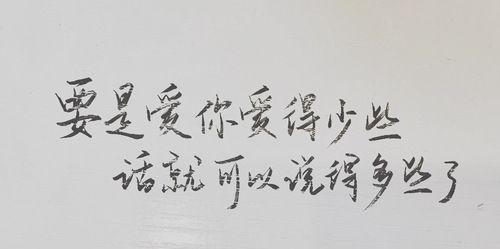 要是爱你爱得少些
话就可以说得多些了